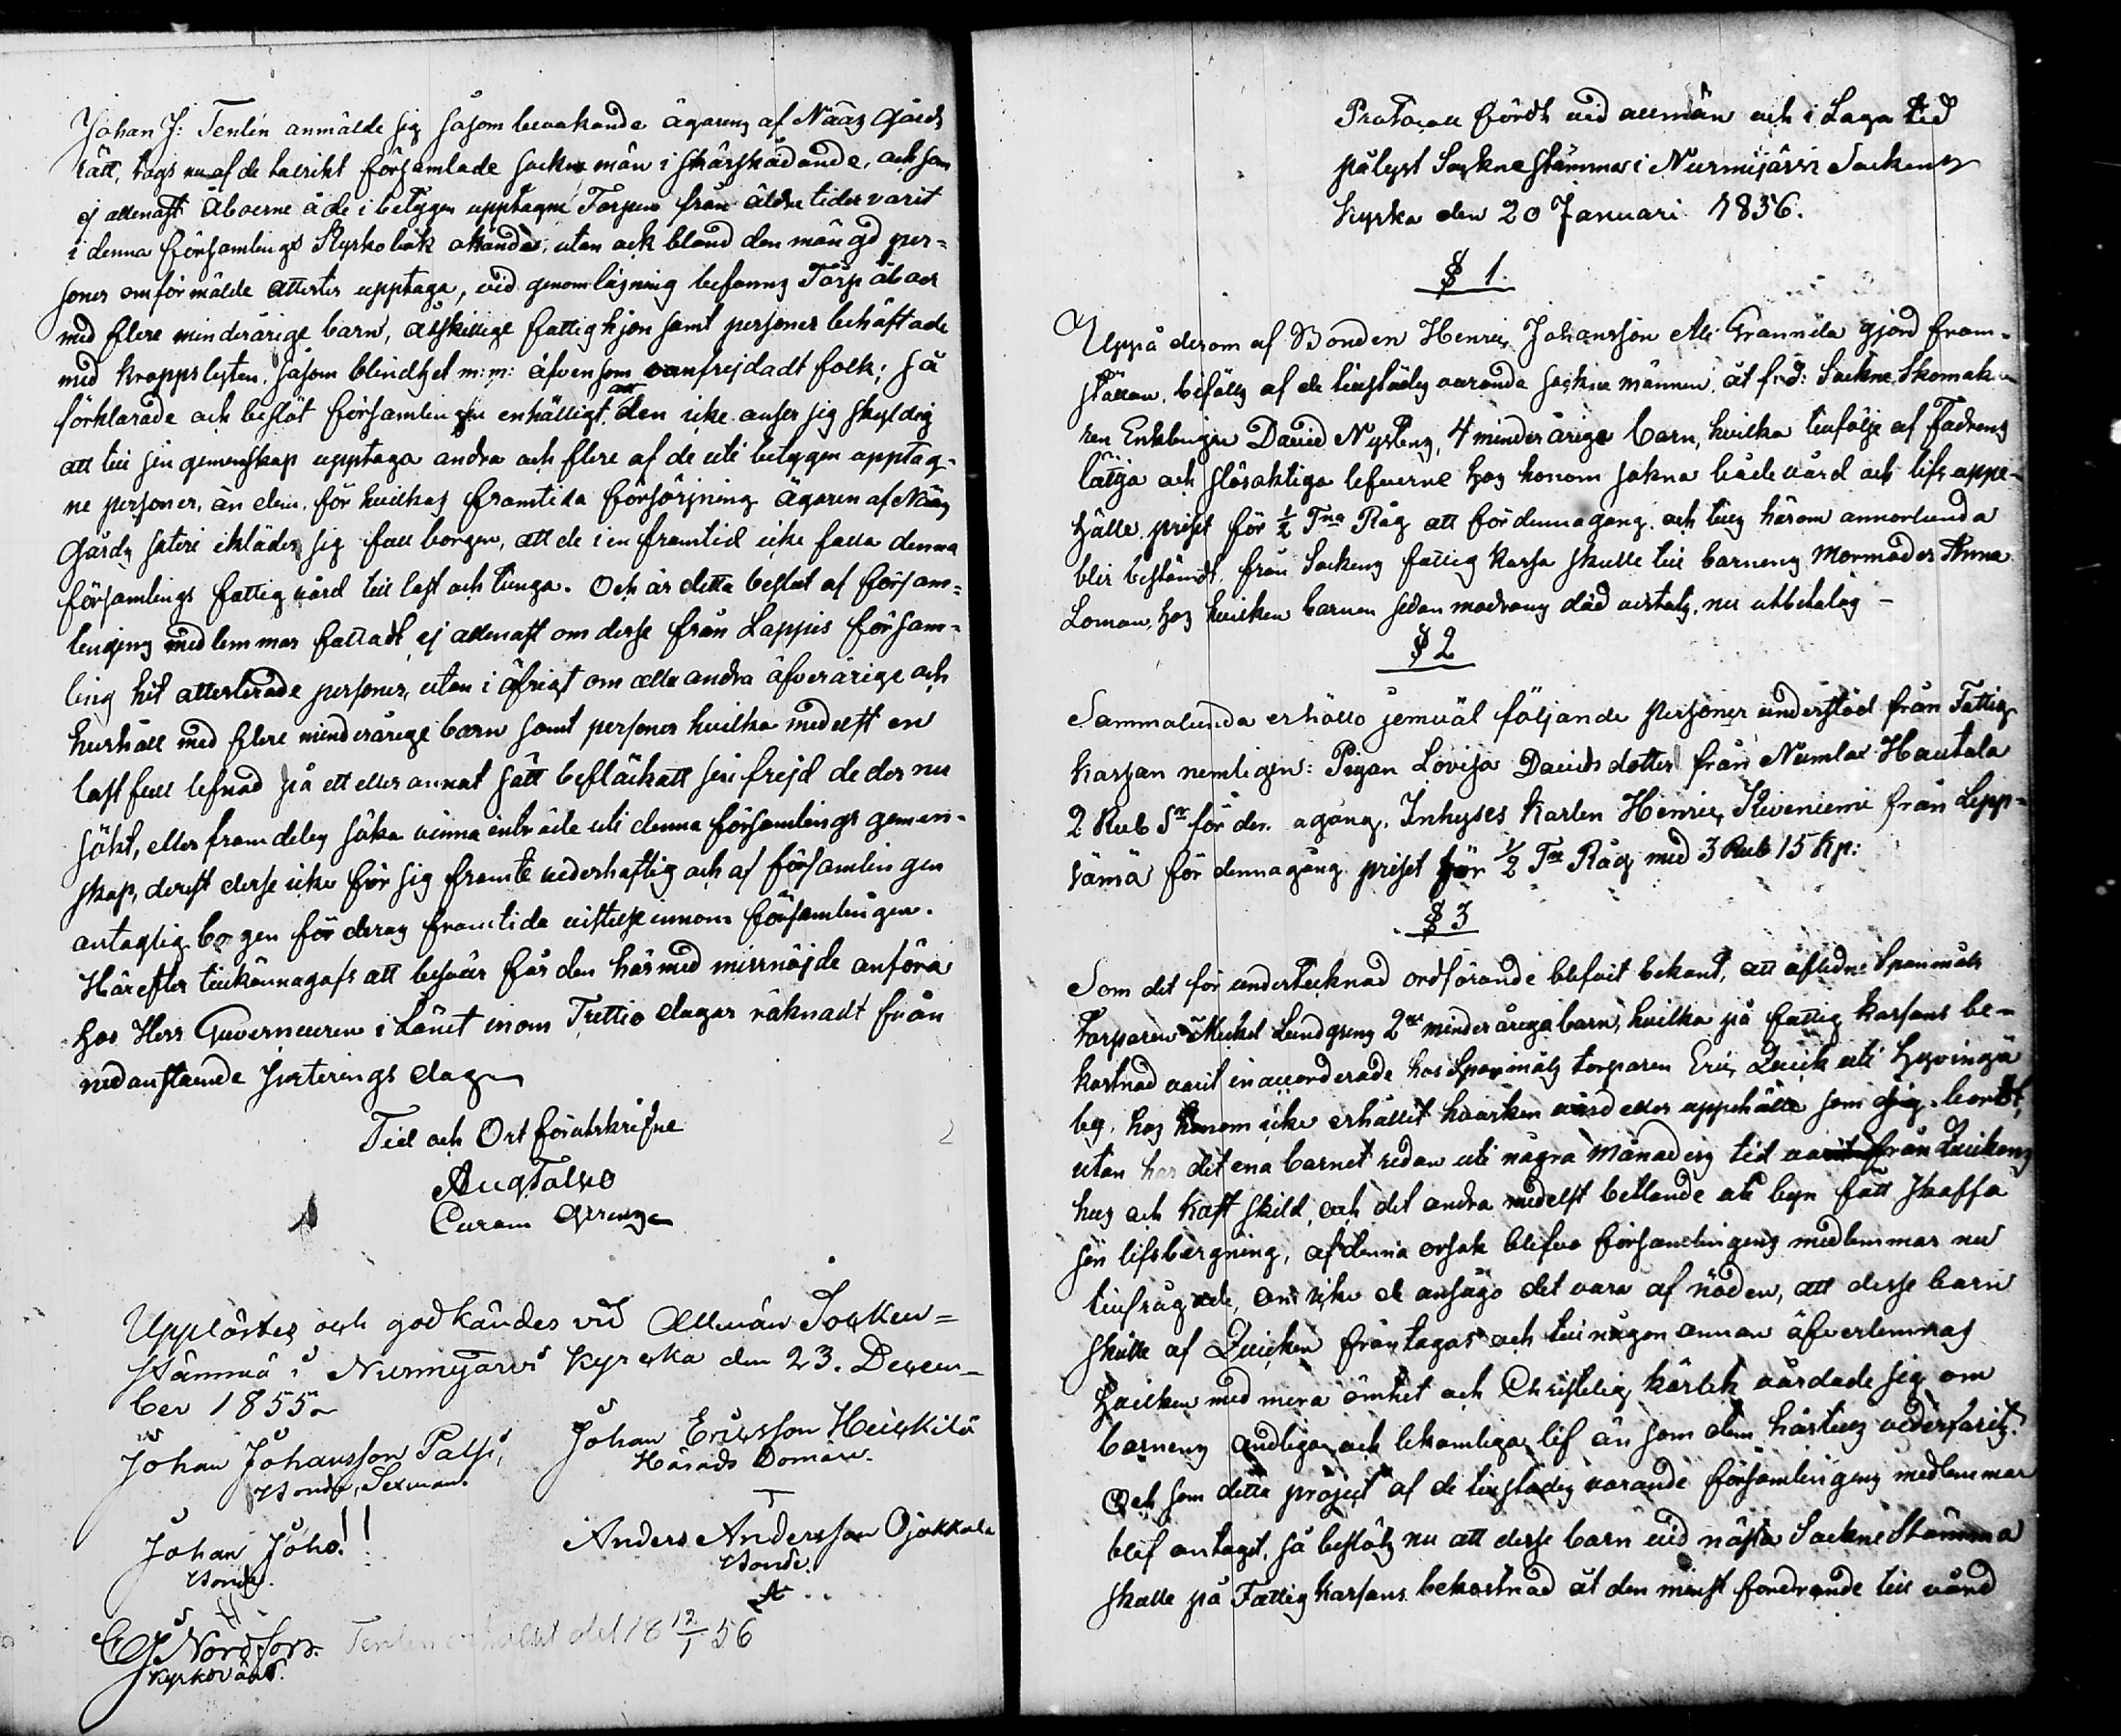 Johan J: Tenlén anmälde sig såsom bevakande ägarens af Nääs Gårds
rätt, togs nu af de talrikt församlade sockne män i skärskådande, och som
ej allenast Åboerne å de i betygen upptagne Torpen från äldre tider varit
i denna församlings Kyrkobok okände, utan ock bland den mängd per-
soner omförmälde attester upptaga, vid genomläsning befanns Torpåboer
med flere minderårige barn, åtskillige fattighjon samt personer behäftade
med kroppslyten, såsom blindhet m:m: äfvensom vanfrejdadt folk; så
förklarade och beslöt församlingen enhälligt, att den icke anser sig skyldig
att till sin gemenskap upptaga andra och flere af de uti betygen upptag-
ne personer, än dem, för hvilkas framtida försörjning ägaren af Nääs
Gårds säteri ikläder sig full borgen, att de i en framtid icke falla denna
församlings fattigvård till last och tunga. Och är detta beslut af försam-
lingens medlemmar fattadt, ej allenast om desse från Lappis försam-
ling hit attesterade personer, utan i öfrigt om alla andra öfverårige och
hushåll med flere minderårige barn samt personer hvilka medelst en
lastfull lefnad på ett eller annat sätt befläckatt sin frejd de der nu
sökt, eller framdeles söka vinna inträde uti denna församlings gemen-
skap, derest desse icke för sig framte vederhäftig och af församlingen
antaglig borgen för deras framtida vistelse innom församlingen.
Härefter tillkännagafs att besvär får den härmed missnöjde anföra
hos Herr Guverneuren i Länet inom Trettio dagar räknadt från
nedanstående justerings dag
Tid och Ort förutskrifne
Aug Talko
Upplästes och godkändes vid Allmän Socken-
stämma i Nurmijärvi Kyrcka den 23. Decem-
ber 1855
Johan Johansson Palsi,
Bonde, Sexman.
Johan Ericsson Heickilä
Härads Domare.
Johan Joho.
Bonde.
Anders Andersson Ojakkala
Bonde.
CG Nordfors.
Kyrkovärd.
Tenlen erhållit del 18 12/1 56
Protocoll fördt vid allmän och i Laga tid
pålyst Sockne stämma i Nurmijärvi Sockens
Kyrka den 20 Januari 1856.
§ 1.
Uppå derom af Bonden Henric Johansson Ali Grannila gjord fram-
ställan, bifölls af de tillstädes varande sockne männen, åt f.d: Sockne Skomaka-
ren Enklingen David Nystens, 4 minderårige barn, hvilka tillfölje af Fadrens
lättja och slösaktiga lefverne hos honom sakna både vård och lifs uppe-
hälle, priset för ½ Tna Råg att för dennagång, och tills härom annorlunda
blir bestämdt, från Sockens fattig kassa skulle till barnens Mormoder Anna
Loman, hos hvilken barnen sedan modrens död vistats, nu utbetalas -
§ 2
Sammalunda erhöllo jemväl följande personer understöd från Fattig-
kassan nemligen: Pigan Lovisa Davids dotter från Numlax Hautala
2 Rub Sr för den agång, Inhyses Karlen Henric Kiveniemi från Lepp-
lämä för dennagång priset för ½ Tna Råg med 3 Rub 15 Kp:
§ 3
Som det för undertecknad ordförande blifvit bekant, att aflidne Spanmåls
torparen Michel Lundgrens 2ne minderåriga barn, hvilka på fattig kassans be-
kostnad varit inaccorderade hos Spanmåls torparen Eric Quick uti Hyvingä
by, hos honom icke erhållit hvarken vård eller uppehälle som sig bordt,
utan har det ena barnet redan uti några Månaders tid varit från Quickens
hus och kost skild, och det andra medelst betlande uti byn fått skaffa
sin lifsbergning, af denna orsak blifvo församlingens medlemmar nu
tillfrågade, om icke de ansågo det vara af nöden, att desse barn
skulle af Quicken fråntagas och till någon annan öfverlemnas
hvilken med mera ömhet och Christelig kärlek vårdade sig om
barnens andliga och lekamliga lif än som dem härtills vederfarits.
Och som detta project af de tillstädes varande församlingens medlemmar
blef antaget, så beslöts nu att desse barn vid nästa Sockne Stämma
skulle på Fattig kassans bekostnad åt den minst fordrande till vård